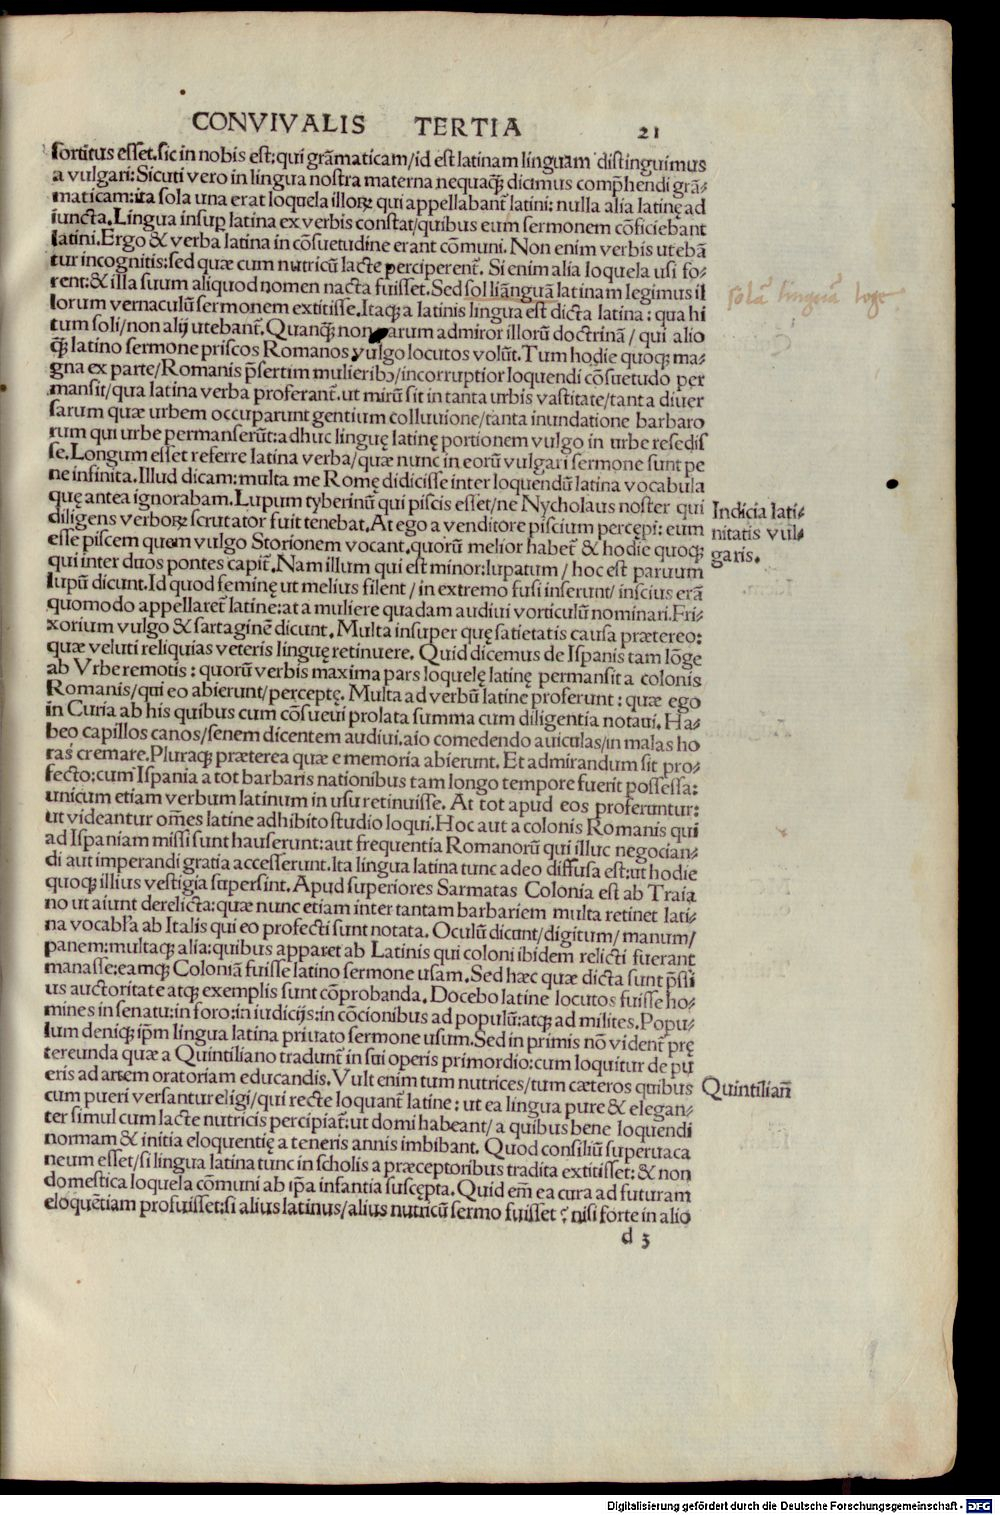 CONVIVALIS TERTIA 21
sortitus esset.sic in nobis est:qui grãmaticam/id est latinam linguam distinguimus
a vulgari:Sicuti vero in lingua nostra materna nequaq̃ dicimus comp̃hendi grã-
maticam:ita sola una erat loquela illoꝝ qui appellabant̃ latini: nulla alia latinę ad
iuncta.Lingua insuꝑ latina ex verbis constat/quibus eum sermonem cõficiebant
latini.Ergo & verba latina in cõsuetudine erant cõmuni. Non enim verbis utebã
tur incognitis:sed quæ cum nutricũ lacte perciperent̃. Si enim alia loquela usi fo-
rent:& illa suum aliquod nomen nacta fuisset.Sed sol liãnguã latinam legimus il
lorum vernaculũ sermonem extitisse.Itaqꝫ a latinis lingua est dicta latina: qua hi
tum soli/non alij utebant̃.Quanqꝫ non parum admiror illorũ doctrinã / qui alio
q̃ꝫ latino sermone priscos Romanos vulgo locutos volũt.Tum hodie quoqꝫ ma-
gna ex parte/Romanis p̃sertim mulieribꝰ/incorruptior loquendi cõsuetudo per
mansit/qua latina verba proferant̃.ut mirũ sit in tanta urbis vastitate/tanta diuer
sarum quæ urbem occuparunt gentium colluuione/tanta inundatione barbaro
rum qui urbe permanserũt:adhuc linguę latinę portionem vulgo in urbe resedis
se.Longum esset referre latina verba/quæ nunc in eorũ vulgari sermone sunt pe
ne infinita.Illud dicam:multa me Romę didicisse inter loquendũ latina vocabula
quę antea ignorabam.Lupum tyberinũ qui piscis esset/ne Nycholaus noster qui
diligens verboꝝ scrutator fuit tenebat.At ego a venditore piscium percępi: eum
esse piscem quem vulgo Storionem vocant.quorũ melior habet̃ & hodie quoqꝫ
qui inter duos pontes capit̃.Nam illum qui est minor:lupatum / hoc est paruum
lupũ dicunt.Id quod feminę ut melius silent / in extremo fusi inserunt/ inscius erã
quomodo appellaret̃ latine:at a muliere quadam audiui vorticulũ nominari.Fri-
xorium vulgo & sartaginẽ dicunt.Multa insuper quę satietatis causa prætereo:
quæ veluti reliquias veteris linguę retinuere. Quid dicemus de Ispanis tam lõge
ab Vrbe remotis: quorũ verbis maxima pars loquelę latinę permansit a colonis
Romanis/qui eo abierunt/perceptę. Multa ad verbũ latine proferunt: quæ ego
in Curia ab his quibus cum cõsueui prolata summa cum diligentia notaui. Ha-
beo capillos canos/senem dicentem audiui.aio comedendo auiculas/in malas ho
ras cremare.Pluraqꝫ præterea quæ e memoria abierunt. Et admirandum sit pro-
fecto:cum Ispania a tot barbaris nationibus tam longo tempore fuerit possessa:
unicum etiam verbum latinum in usu retinuisse. At tot apud eos proferuntur:
ut videantur om̃es latine adhibito studio loqui.Hoc aut a colonis Romanis qui
ad Ispaniam missi sunt hauserunt:aut frequentia Romanorũ qui illuc negocian-
di aut imperandi gratia accesserunt.Ita lingua latina tunc adeo diffusa est:ut hodie
quoqꝫ illius vestigia supersint.Apud superiores Sarmatas Colonia est ab Traia
no ut aiunt derelicta:quæ nunc etiam inter tantam barbariem multa retinet lati-
na vocabl̃a ab Italis qui eo profecti sunt notata. Oculũ dicunt/digitum/manum/
panem:multaqꝫ alia:quibus apparet ab Latinis qui coloni ibidem relicti fuerant
manasse:eamqꝫ Coloniã fuisse latino sermone usam.Sed hæc quæ dicta sunt p̃ssi
us auctoritate atqꝫ exemplis sunt cõprobanda.Docebo latine locutos fuisse ho-
mines in senatu:in foro:in iudicijs:in cõcionibus ad populũ:atqꝫ ad milites.Popu-
lum deniqꝫ ip̃m lingua latina priuato sermone usum.Sed in primis nõ vident̃ prę
tereunda quæ a Quintiliano tradunt̃ in sui operis primordio:cum loquitur de pu
eris ad artem oratoriam educandis.Vult enim tum nutrices/tum cæteros quibus
cum pueri versantur eligi/qui recte loquant̃ latine: ut ea lingua pure & elegan-
ter simul cum lacte nutricis percipiat̃:ut domi habeant/a quibus bene loquendi
normam & initia eloquentię a teneris annis imbibant. Quod consiliũ superuaca
neum esset/si lingua latina tunc in scholis a præceptoribus tradita extitisset: & non
domestica loquela cõmuni ab ip̃a infantia suscępta.Quid em̃ ea cura ad futuram
eloquẽtiam profuisset:si alius latinus/alius nutricũ sermo fuisset ? nisi forte in alio
d 3
solã linguã
Indicia lati-
nitatis vul-
garis.
Quintilian̄
Digitalisierung gefördert durch die Deutsche Forschungsgemeinschaft - DFG